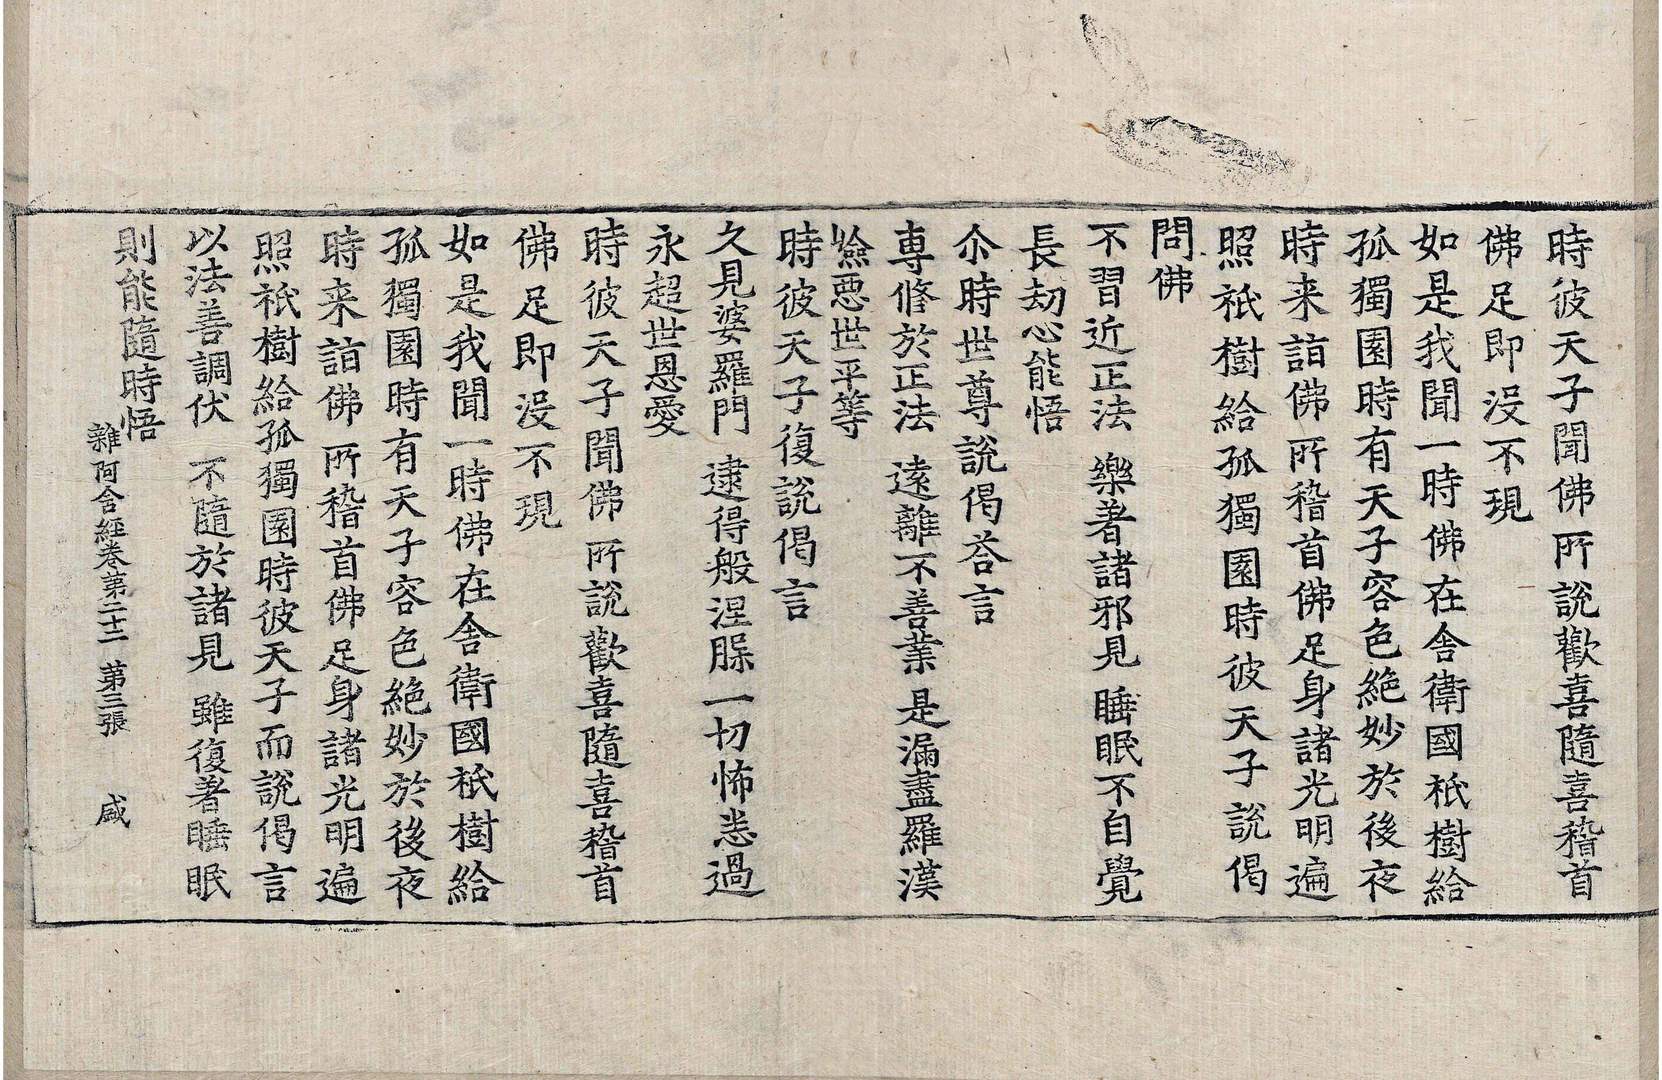 時彼天子聞佛所說歡喜隨喜稽首
佛足即沒不現
如是我聞一時佛在舍衛國祇樹給
孤獨園時有天子容色絶妙於後夜
時来詣佛所稽首佛足身諸光明遍
照祇樹給孤獨園時彼天子說偈
問佛
不習近正法 樂著諸邪見 睡眠不自覺
長劫心能悟
尒時世尊說偈荅言
専修於正法 遠離不善業 是漏盡羅漢
嶮惡世平等
時彼天子復說偈言
久見婆羅門 逮得般涅槃 一切怖悉過
永超世恩愛
時彼天子聞佛所說歡喜隨喜稽首
佛足即沒不現
如是我聞一時佛在舍衛國祇樹給
孤獨園時有天子容色絶妙於後夜
時来詣佛所稽首佛足身諸光明遍
照祇樹給孤獨園時彼天子而說偈言
以法善調伏 不隨於諸見 雖復著睡眠
則能隨時悟
雜阿含經卷第二十二 第三張 咸